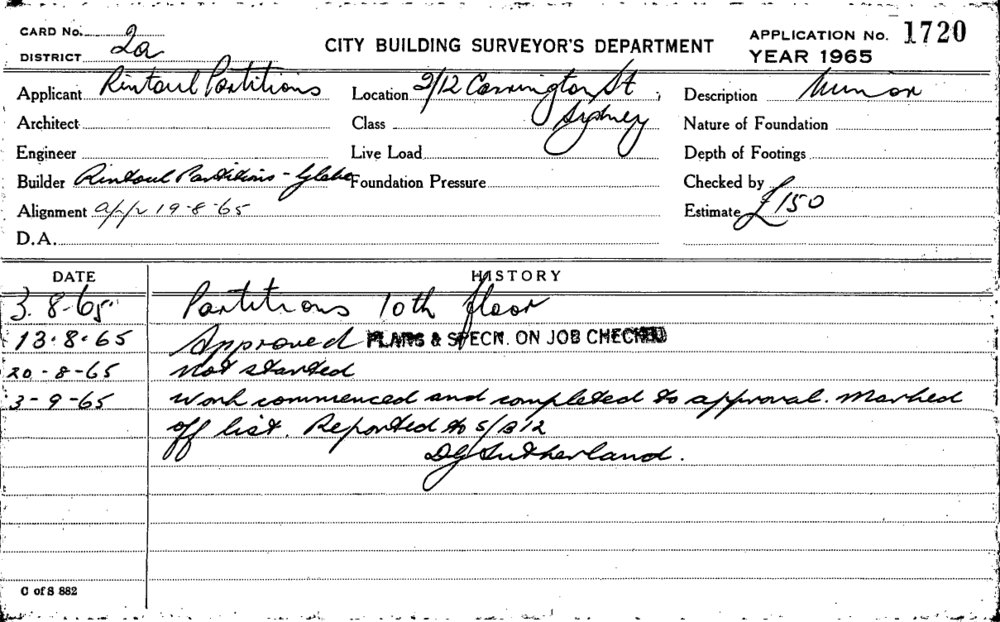 CARD No.
DISTRICT 2a
CITY BUILDING SURVEYOR'S DEPARTMENT
APPLICATION No. 1720
YEAR 1965
Applicant Rintoul Partitions
Location 2/12 Carrington St Sydney
Description Minor
Architect
Class
Nature of Foundation
Engineer
Live Load
Depth of Footings
Builder Rintoul Partitions - Glebe
Foundation Pressure
Checked by
Alignment app 19-8-65
Estimate £150
D.A.
DATE HISTORY
3.8-65. Partitions 10th floor
13.8.65 Approved PLANS & SPECN. ON JOB CHECKED
20-8-65 Not started
3-9-65 Work commenced and completed to approval. Marked
off list. Reported to
DG Sutherland.
C of S 882